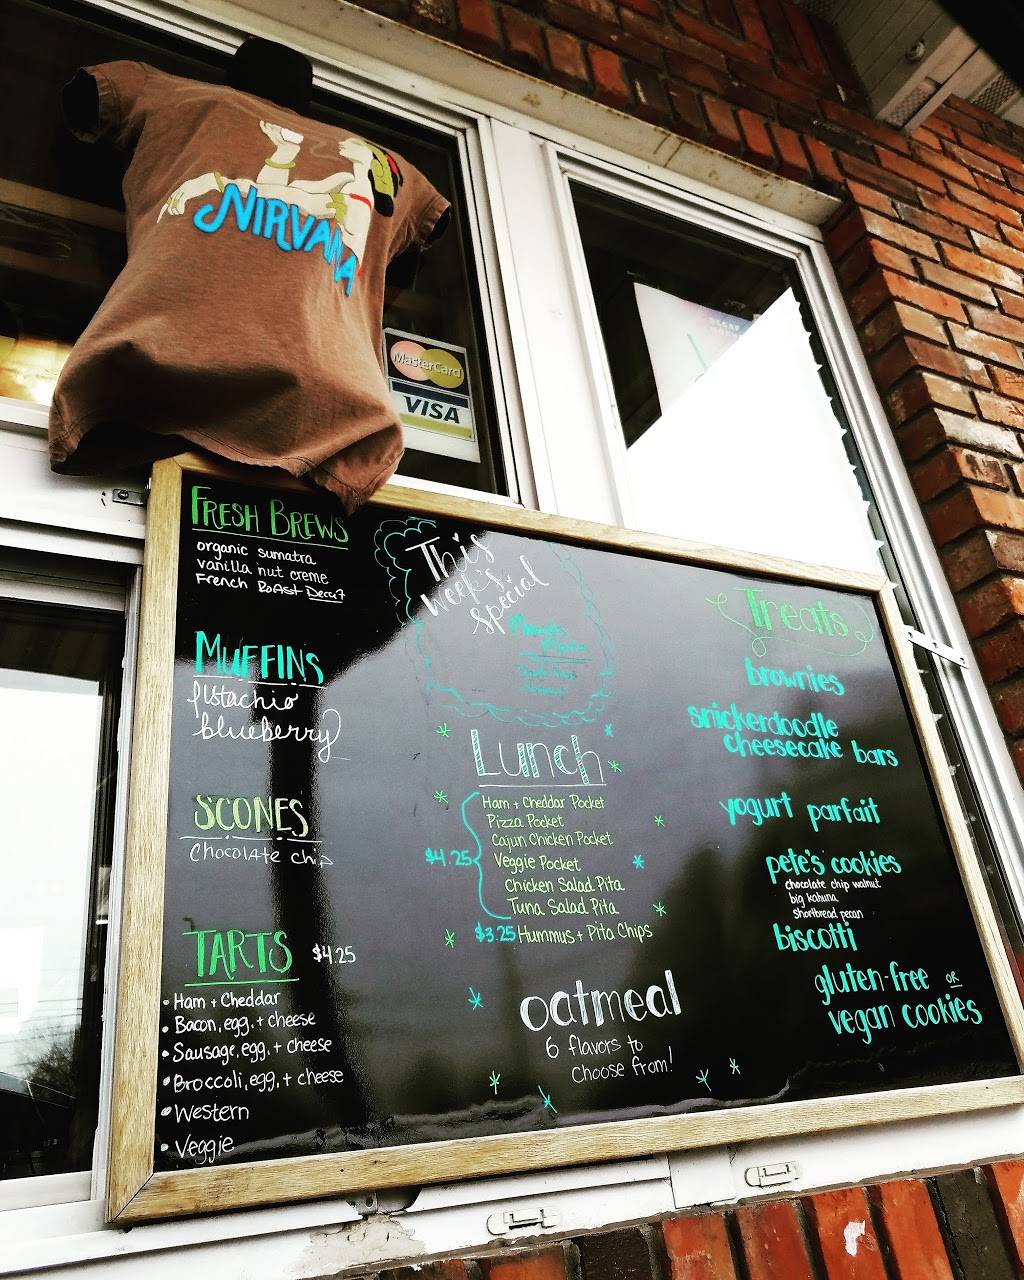 NIRVANA
MasterCard
VISA
FRESH BREWS
organic sumatra
vanilla nut creme
French Roast Decaf
MUFFINS
pistachio
blueberry
SCONES
Chocolate chip
TARTS $4.25
• Ham + Cheddar
• Bacon, egg, + cheese
• Sausage, egg, + cheese
• Broccoli, egg, + cheese
• Western
• Veggie
This
week's
special
Lunch
$4.25
Ham + Cheddar Pocket
Pizza Pocket
Cajun Chicken Pocket
Veggie Pocket
Chicken Salad Pita
Tuna Salad Pita
$3.25 Hummus + Pita Chips
oatmeal
6 flavors to
choose from!
Treats
brownies
snickerdoodle
cheesecake bars
yogurt parfait
pete's cookies
chocolate chip walnut
big kahuna
shortbread pecan
biscotti
gluten-free or
vegan cookies